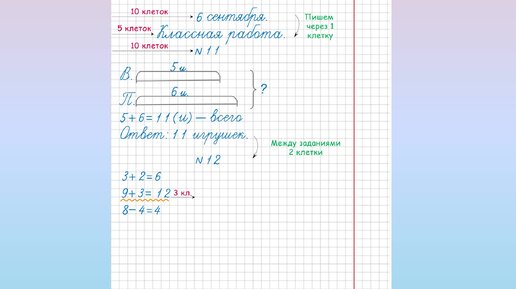 10 клеток 6 сентября. Пишем
5 клеток Классная работа. через 1
10 клеток клетку
N 11
В. 5 и.
П. 6 и. ?
5+6=11(и) — всего
Ответ: 11 игрушек.
Между заданиями
2 клетки
N 12
3+2=6
9+3=12 3 кл.
8-4=4